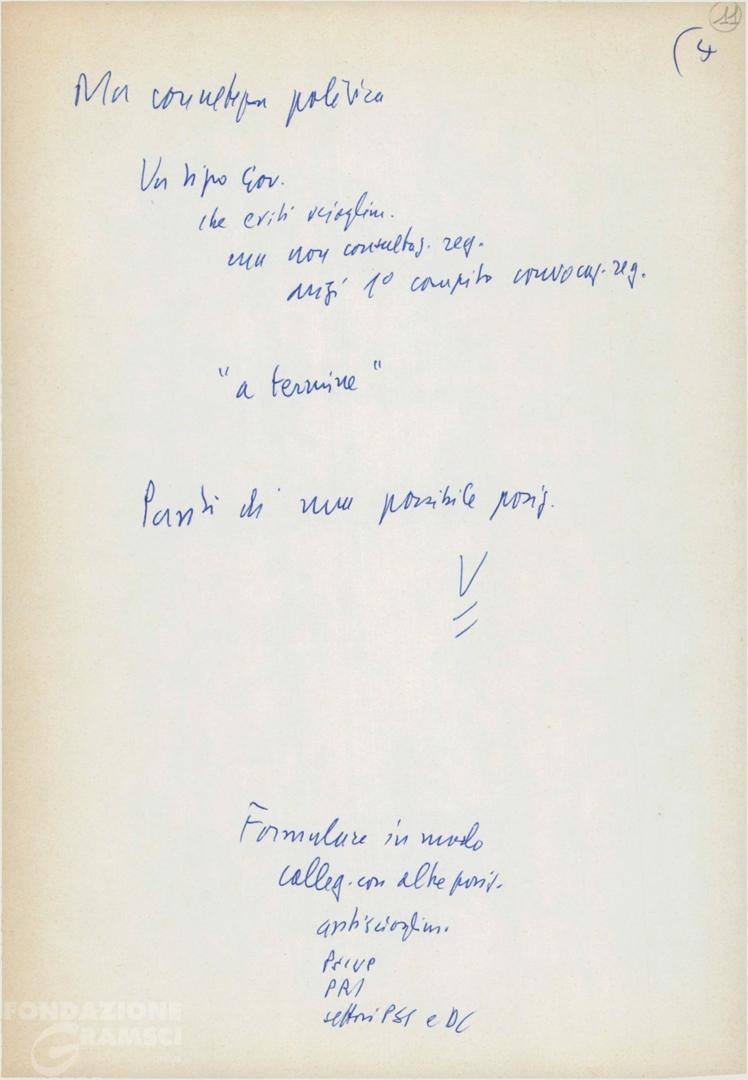 11
(4
Ma concretezza politica
Un tipo Gov.
che eviti scioglim.
ma non consultaz. reg.
anzi 1º compito convocaz. reg.
"a termine"
Punti di una possibile posiz.
V
Formulare in modo
colleg. con altre posiz.
antiscioglim.
PSIUP
PRI
settori PSI e DC
FONDAZIONE
GRAMSCI